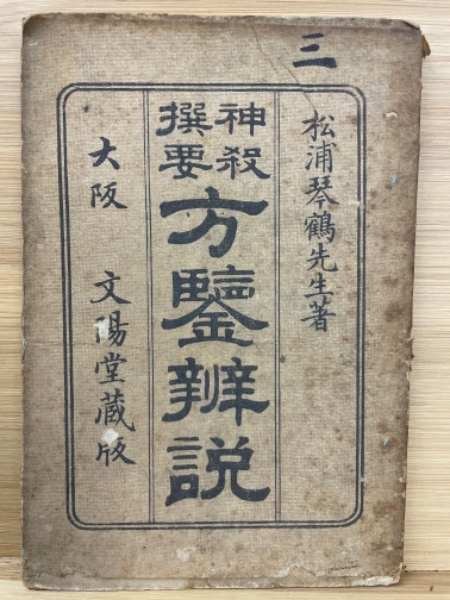 三
松浦琴鶴先生著
神殺
撰要
方鑒辨説
大阪 文陽堂蔵版